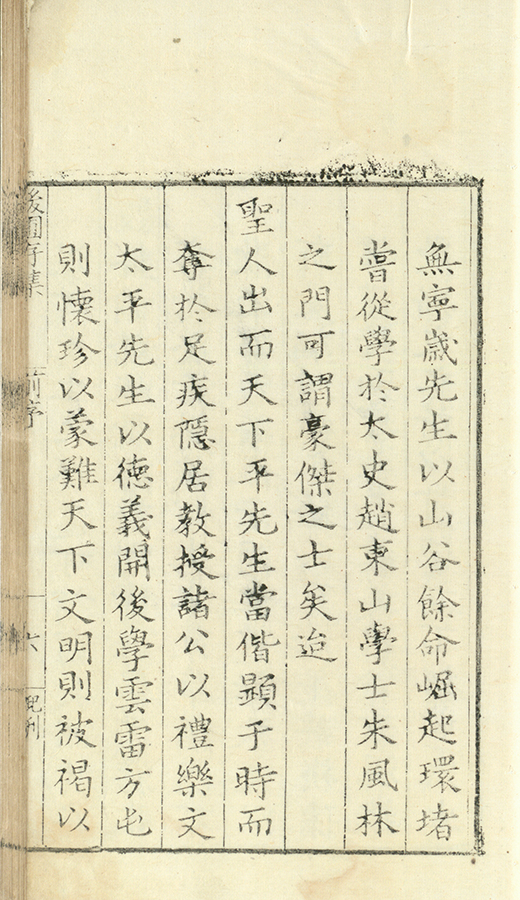 無寧歲先生以山谷餘命崛起環堵
嘗從學於太史趙東山學士朱風林
之門可謂豪傑之士矣迨
聖人出而天下平先生當偕顯于時而
奪於足疾隱居教授諸公以禮樂文
太平先生以德義開後學雲雷方屯
則懷珍以蒙難天下文明則被褐以
前序
六